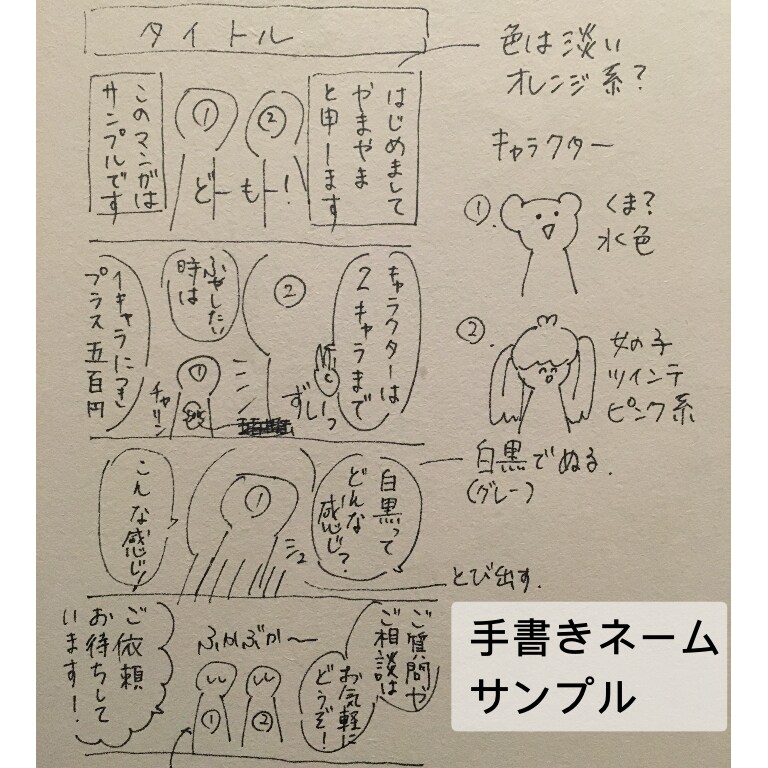 タイトル
色は淡い
オレンジ系?
はじめまして
やまやま
と申ーします
①
②
どーもー!
このマンガは
サンプルです
キャラクター
①.
くま?
水色
②.
女の子
ツインテ
ピンク系
キャラクターは
2キャラまで
②
ずしーっ
ふやしたい
時は
①
チャリン
1キャラにつき
プラス五百円
白黒でぬる.
(グレー)
白黒って
どんな
感じ?
①
こんな感じ!
とび出す.
ご質問や
ご相談は
お気軽に
どうぞ!
ふかぶかー
①
②
ご依頼
お待ちして
います!
手書きネーム
サンプル